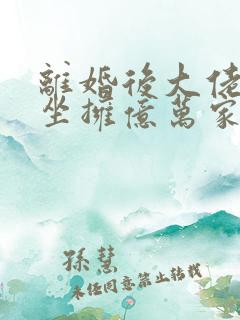 離婚後大佬
坐擁億萬家
孫慧
未經同意禁止轉載